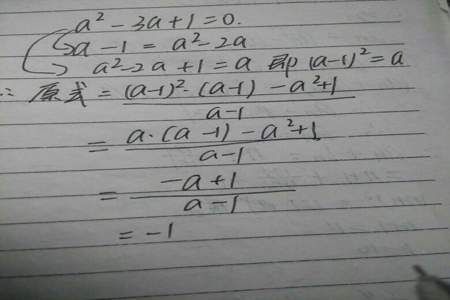 a²-3a+1=0.
a-1=a²-2a
a²-2a+1=a 即(a-1)²=a
∴ 原式=\frac{(a-1)²·(a-1)-a²+1}{a-1}
=\frac{a·(a-1)-a²+1}{a-1}
=\frac{-a+1}{a-1}
=-1